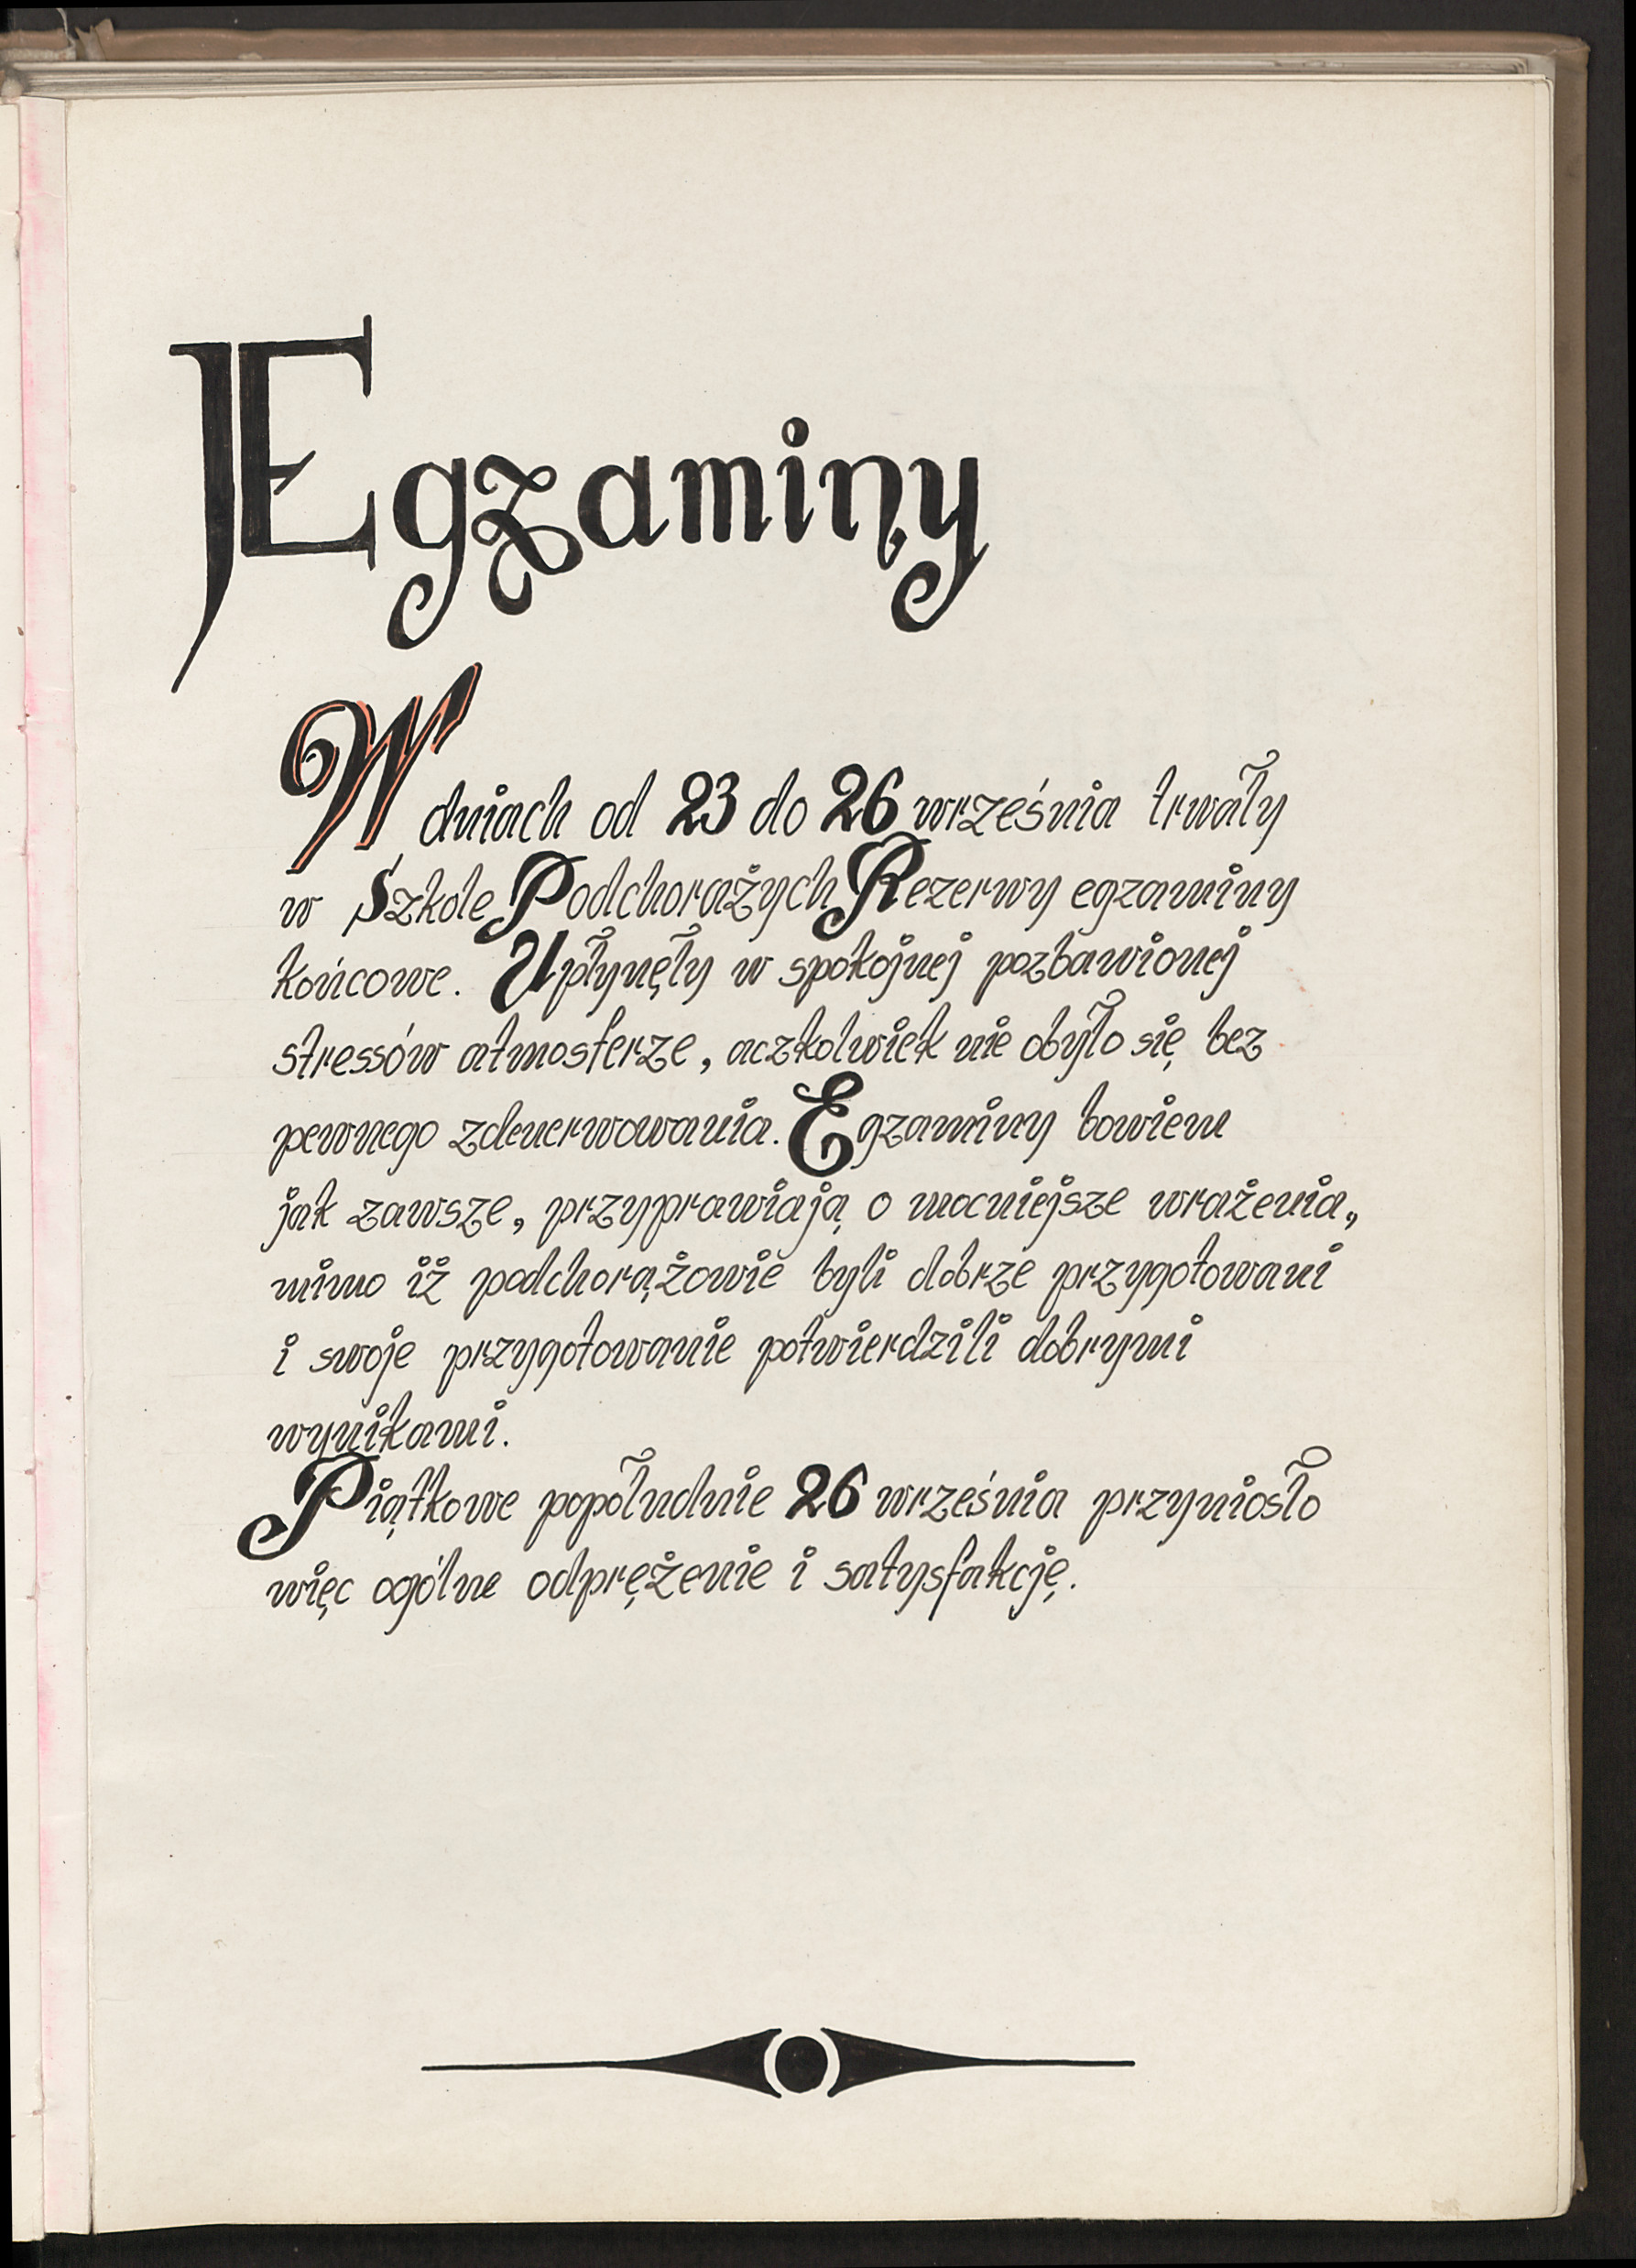 Egzaminy
W dniach od 23 do 26 września trwały
w Szkole Podchorążych Rezerwy egzaminy
końcowe. Upłynęły w spokojnej pozbawionej
stressów atmosferze, aczkolwiek nie obyło się bez
pewnego zdenerwowania. Egzaminy bowiem
jak zawsze, przyprawiają o mocniejsze wrażenia,
mimo iż podchorążowie byli dobrze przygotowani
i swoje przygotowanie potwierdzili dobrymi
wynikami.
Piątkowe popołudnie 26 września przyniosło
więc ogólne odprężenie i satysfakcję.